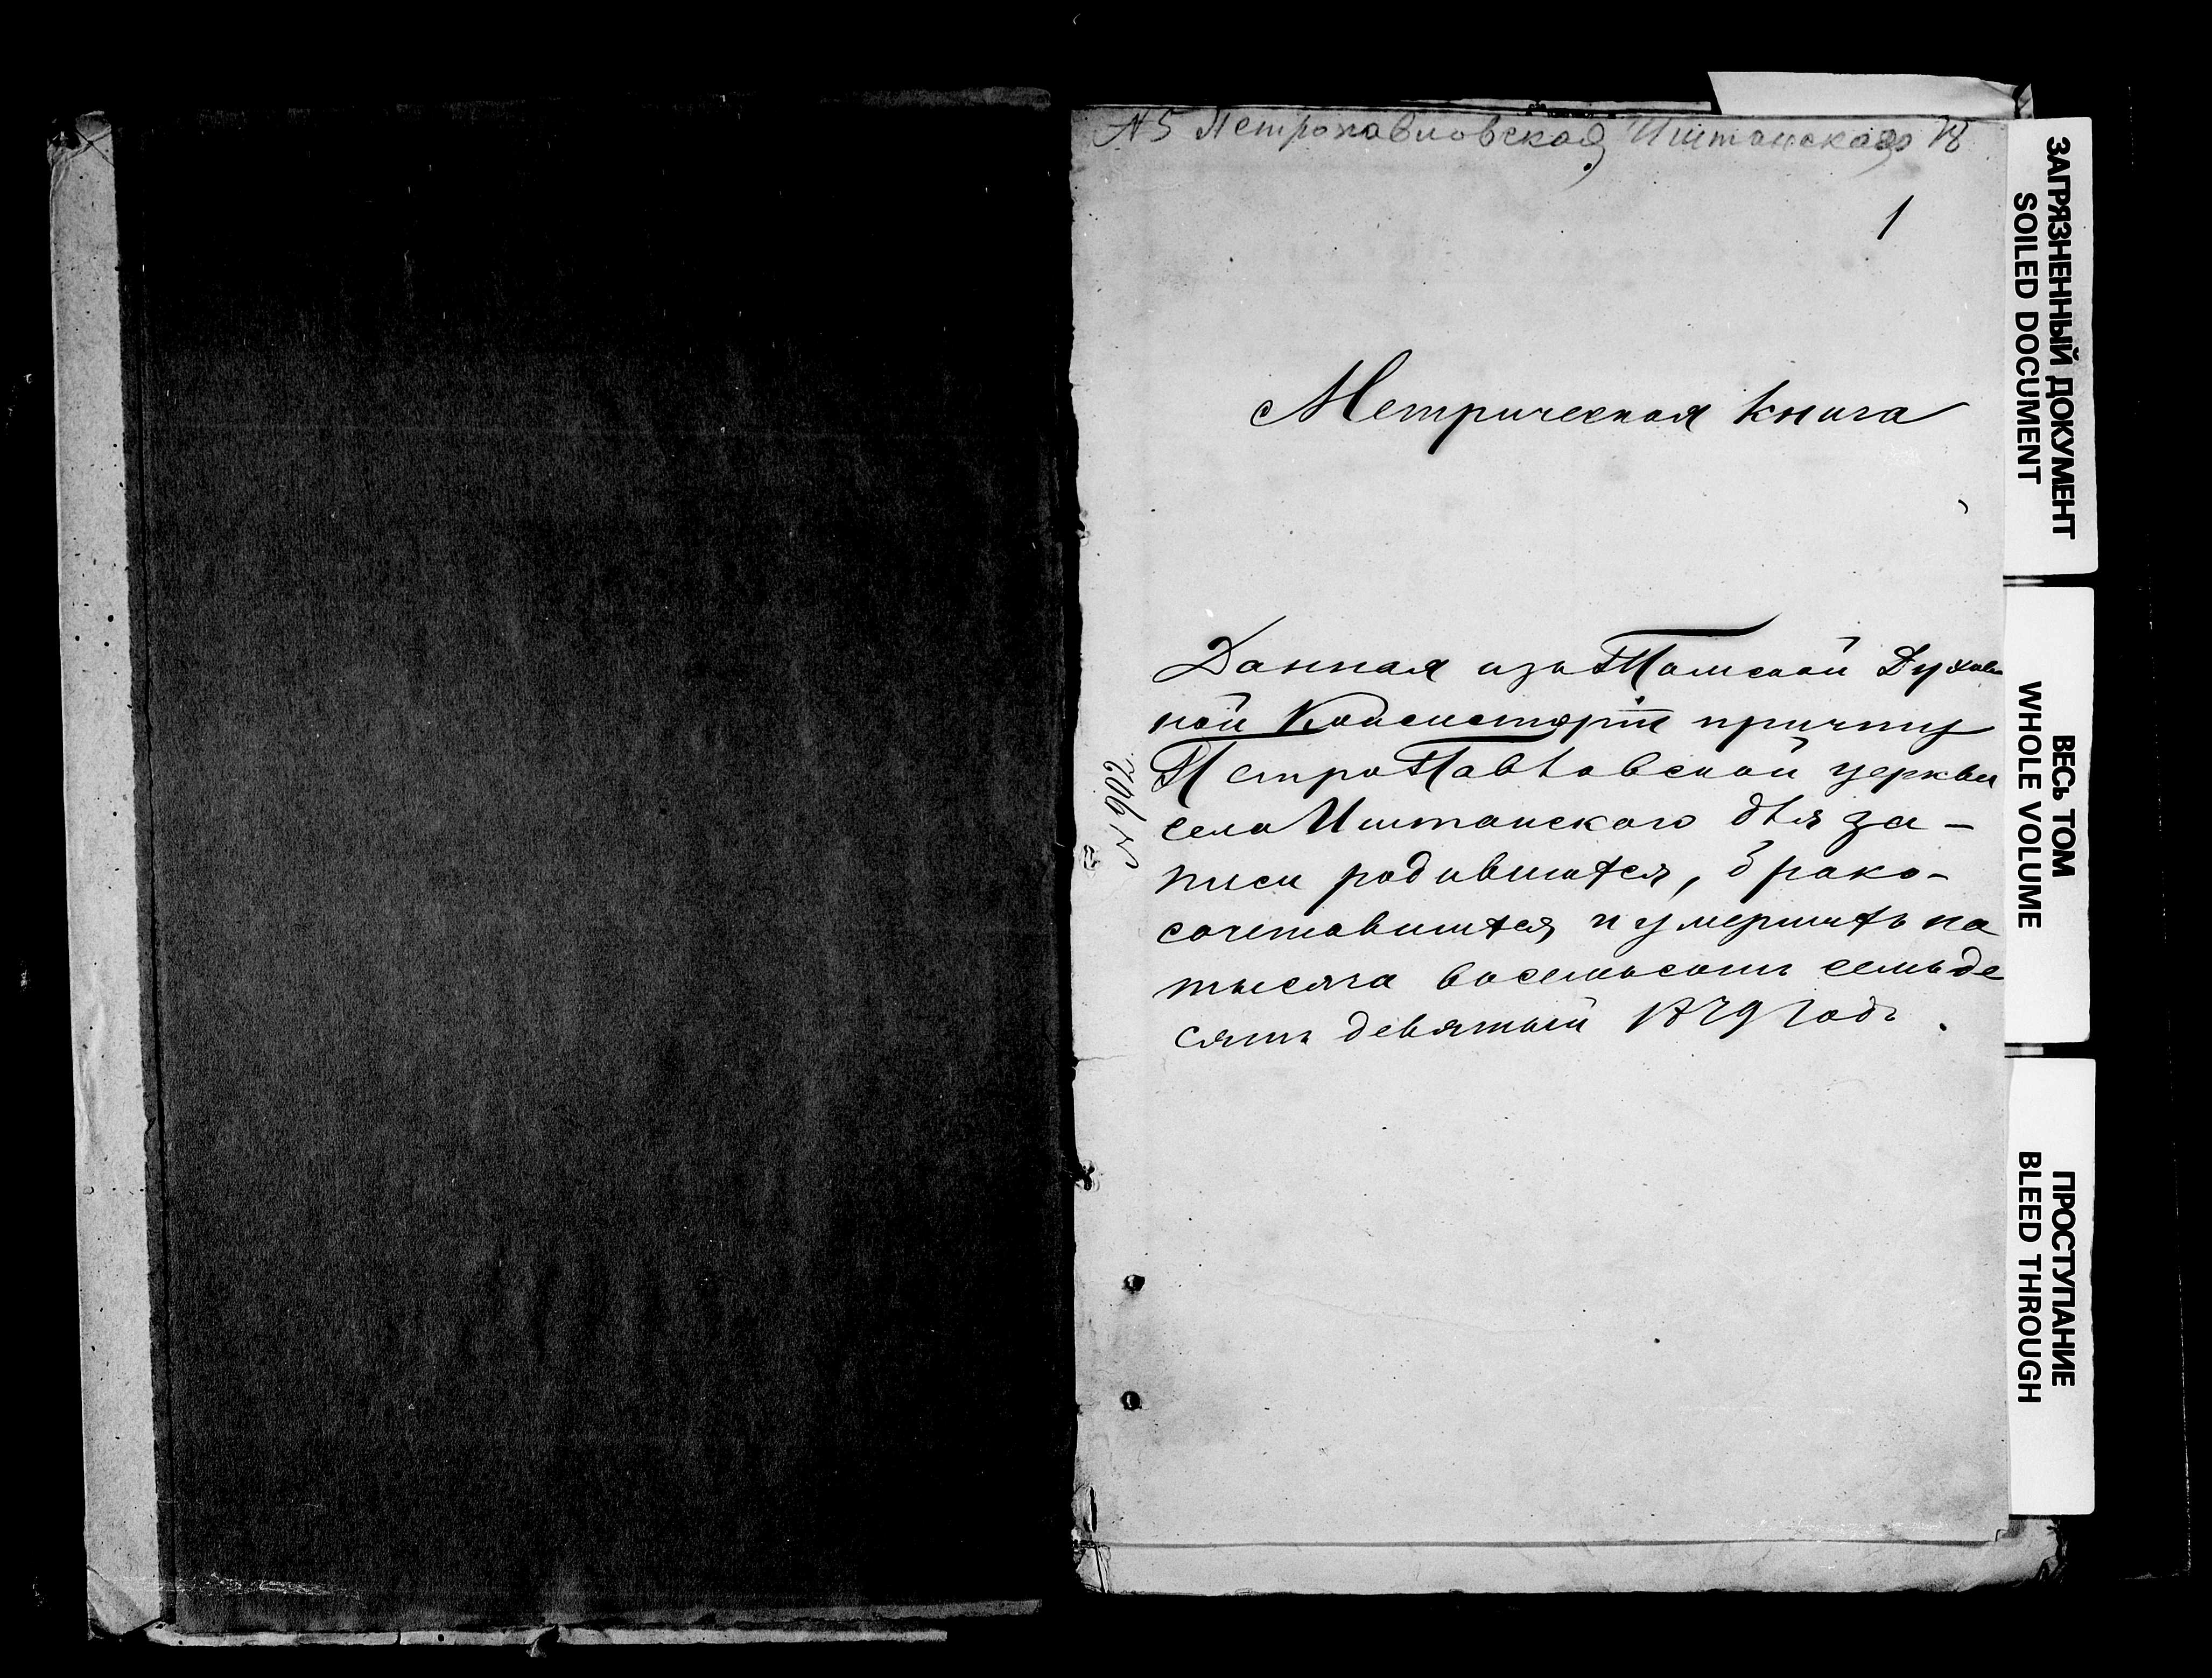 № 5 Петропавловская Иштанская
1
Метрическая книга
Данная изъ Томской Духов
ной Консисторіи причту
ПетроПавловской церкви
села Иштанского для за-
писи родившихся, брако-
сочетавшихся и умершихъ на
тысяча восемьсотъ семьде
сятъ девятый 1879 годъ.
ЗАГРЯЗНЕННЫЙ ДОКУМЕНТ
SOILED DOCUMENT
ВЕСЬ ТОМ
WHOLE VOLUME
ПРОСТУПАНИЕ
BLEED THROUGH